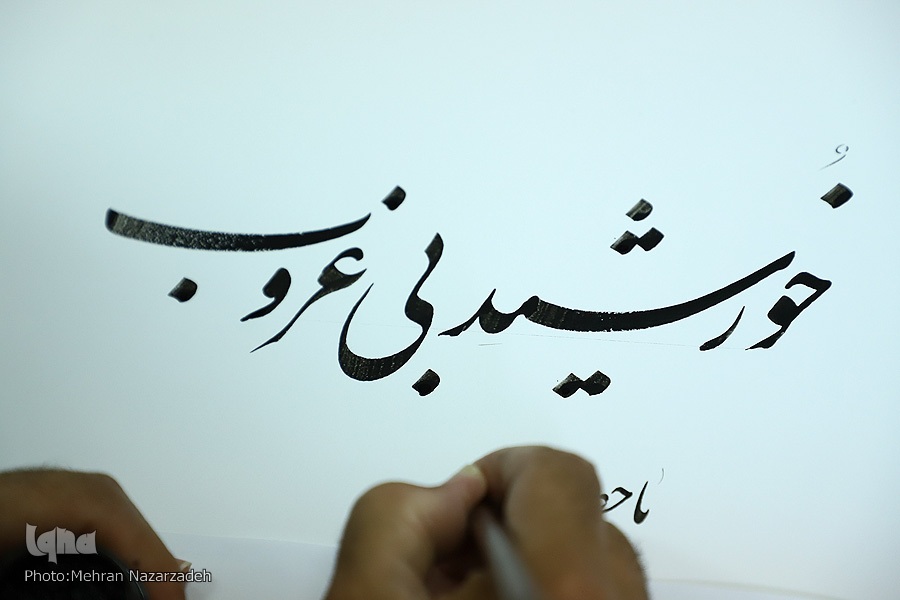 خُورشید بی غروب
Iqna
Photo:Mehran Nazarzadeh